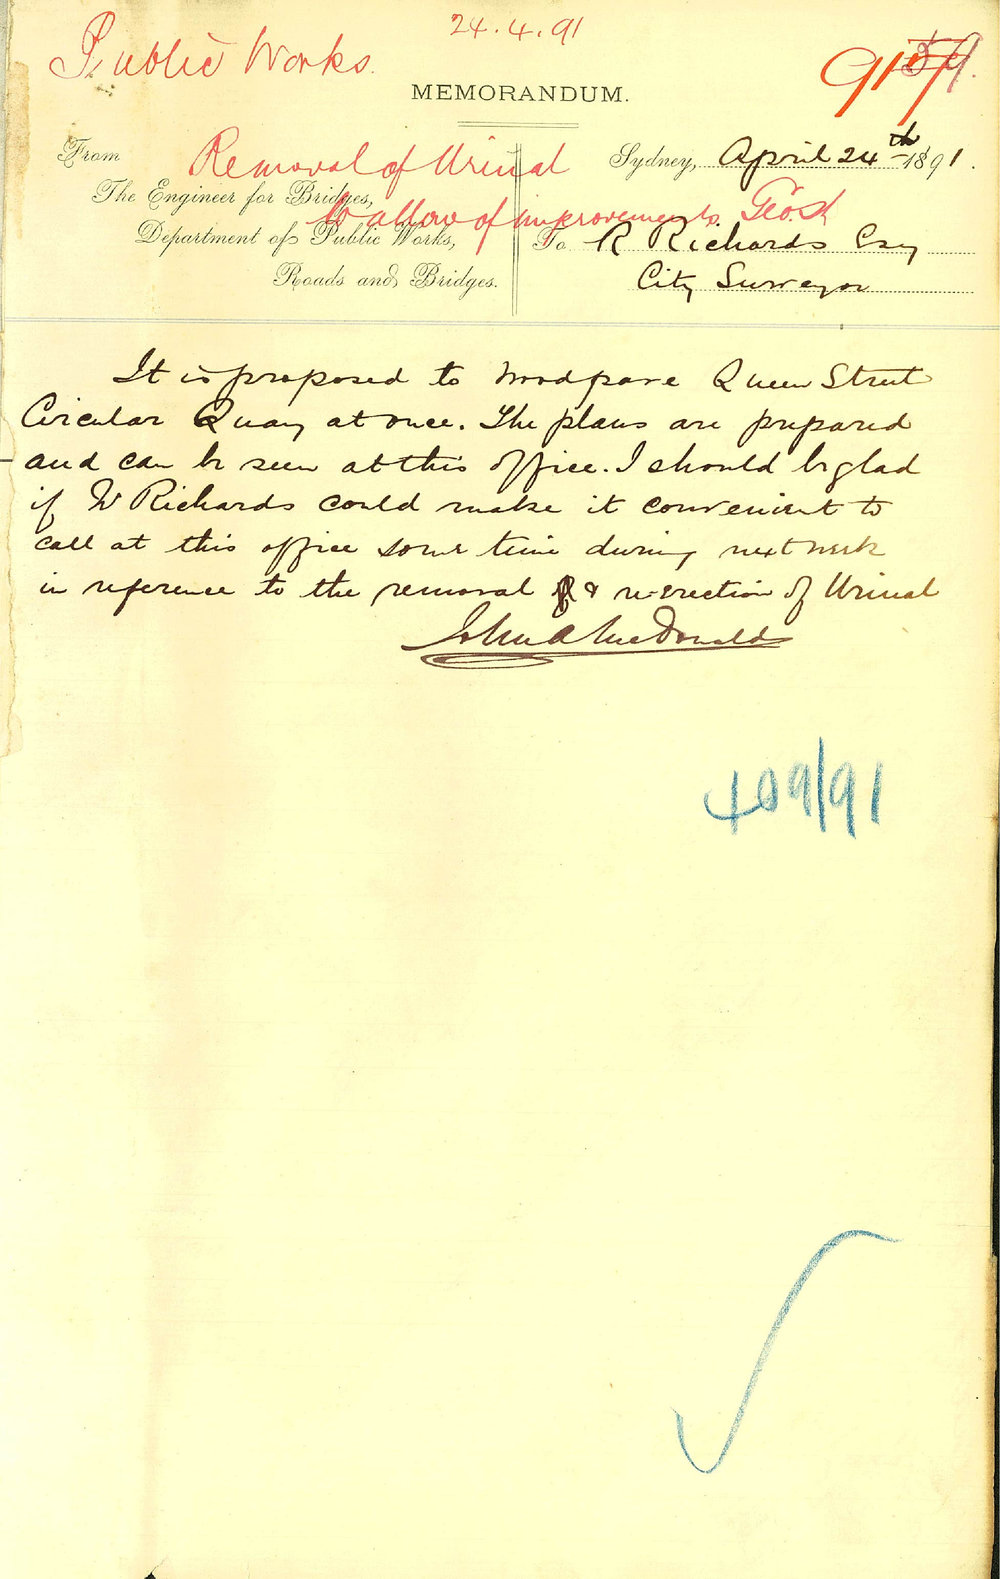 24.4.91
Public Works.
MEMORANDUM.
From
Removal of Urinal
Sydney, April 24th 1891.
The Engineer for Bridges,
to allow of improvements. Geo. St
Department of Public Works,
To R Richards Esq
Roads and Bridges.
City Surveyor
It is proposed to woodpave Queen Street
Circular Quay at once. The plans are prepared
and can be seen at this office. I should be glad
if Mr Richards could make it convenient to
call at this office some time during next week
in reference to the removal & re-erection of Urinal
John A MacDonald
409/91